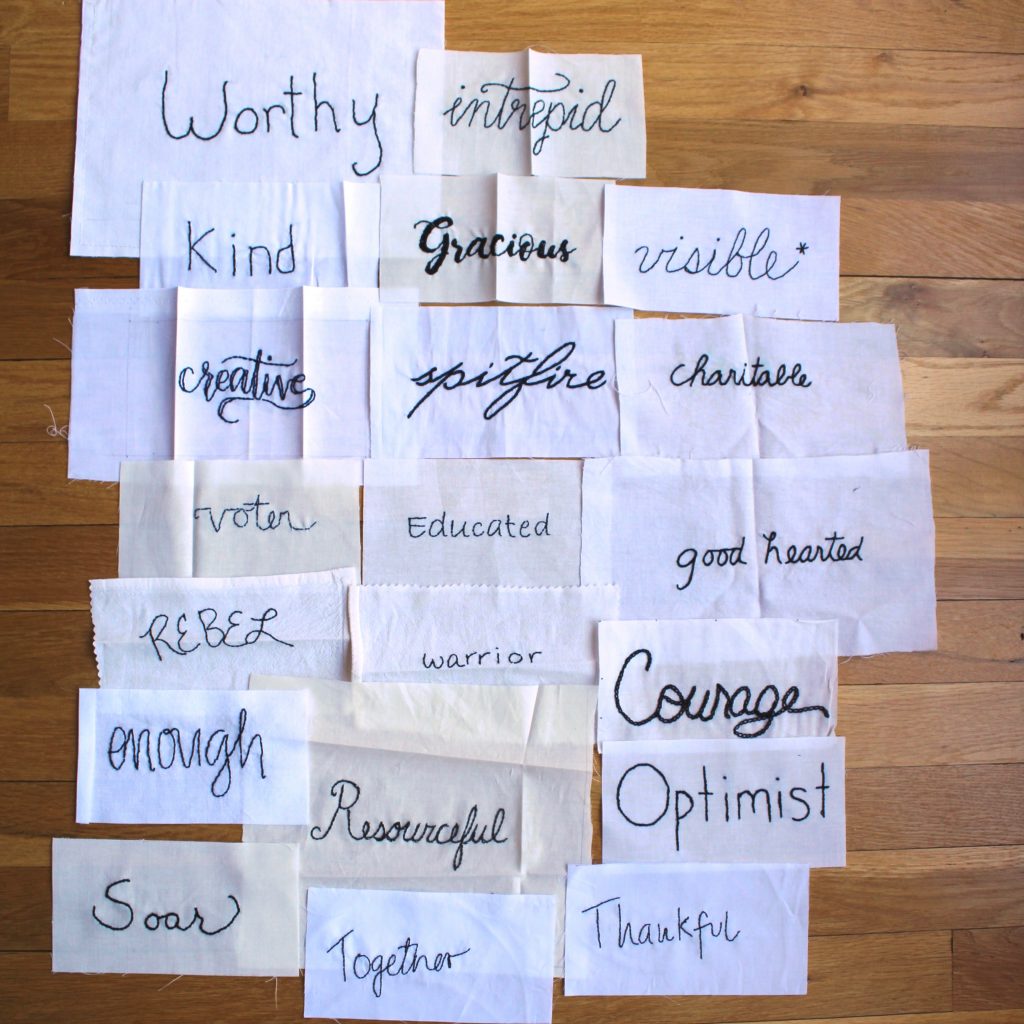 Worthy
intrepid
Kind
Gracious
visible*
creative
spitfire
charitable
voter
Educated
good hearted
REBEL
warrior
Courage
enough
Resourceful
Optimist
Soar
Together
Thankful